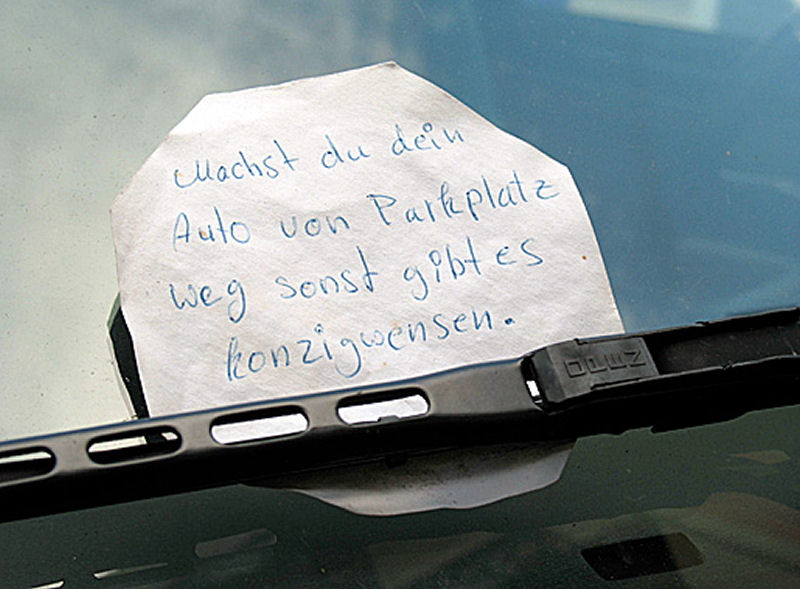 Machst du dein
Auto von Parkplatz
weg sonst gibt es
konzigwensen.
OPEN